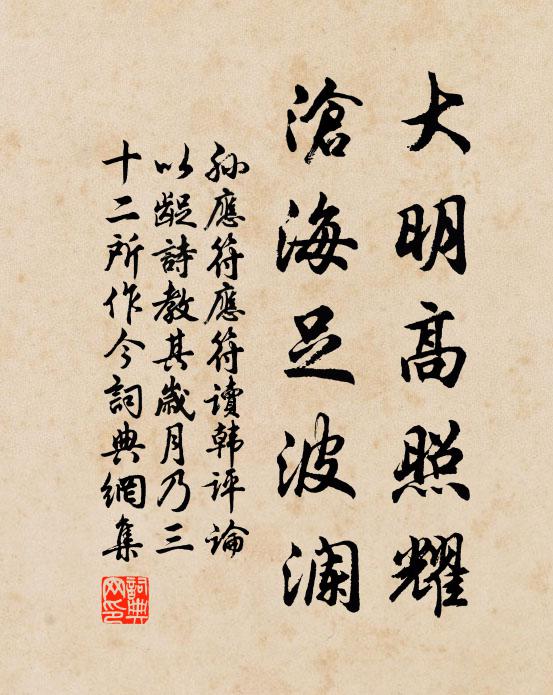 大明高照耀
滄海足波瀾
孙應符應符讀韩評論
以齪詩教其歲月乃三
十二所作今詞典網集
詞典
网印